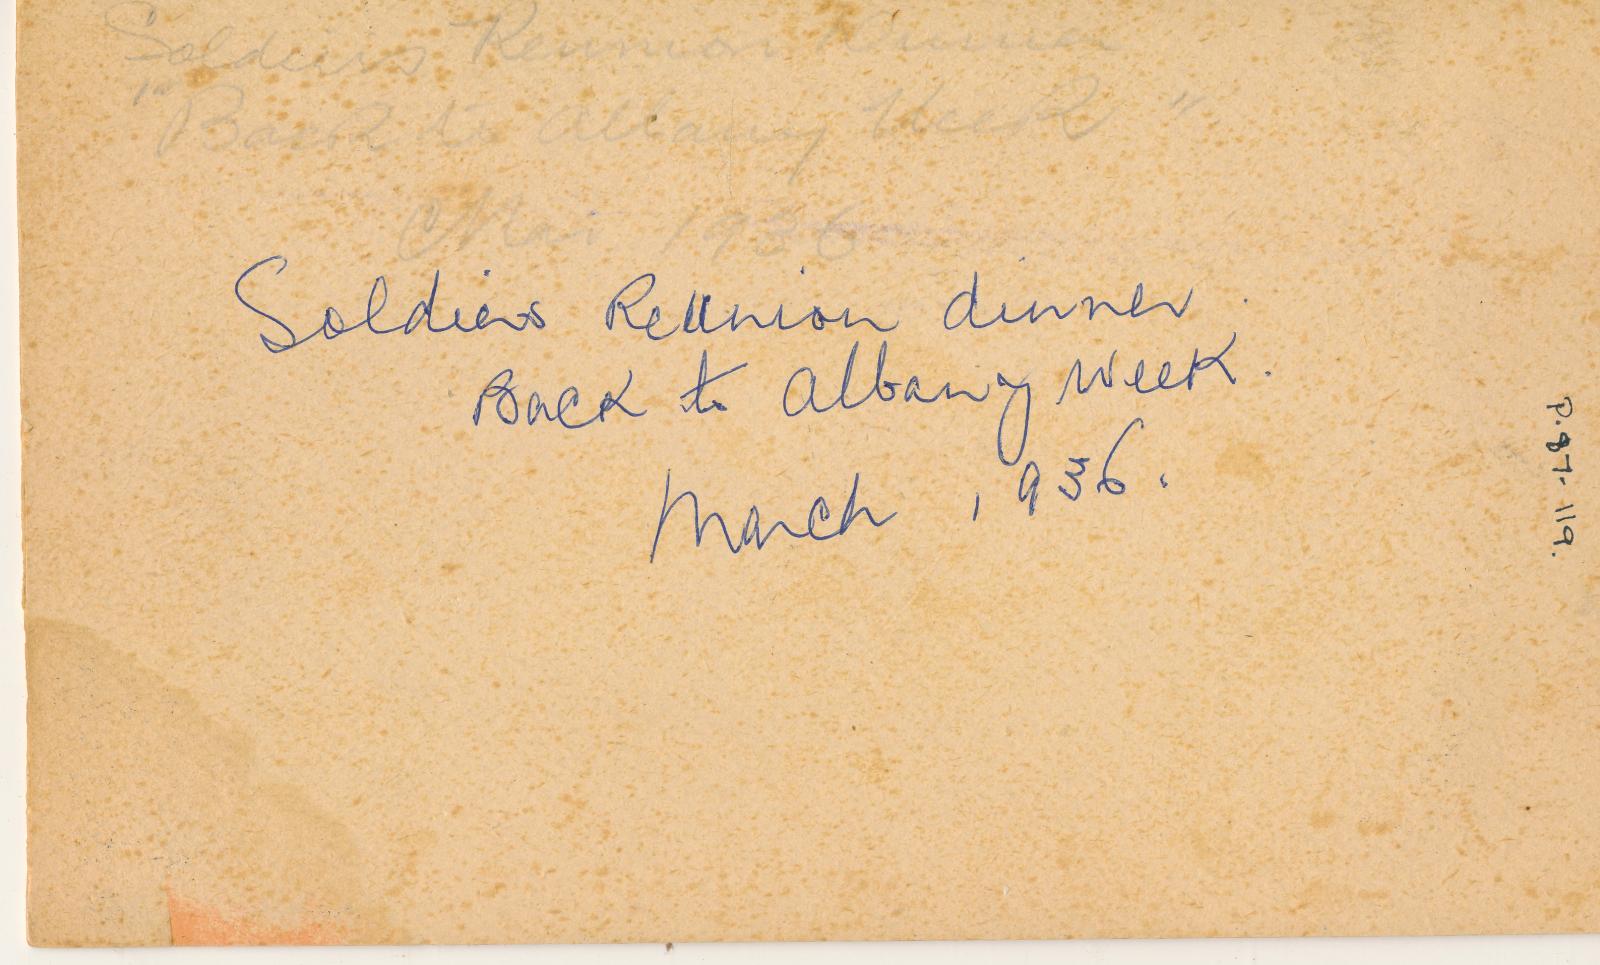 Soldiers Reunion Dinner
"Back to Albany Week"
Mar 1936
Soldiers Reunion dinner.
Back to Albany Week.
March 1936.
P.87.119.